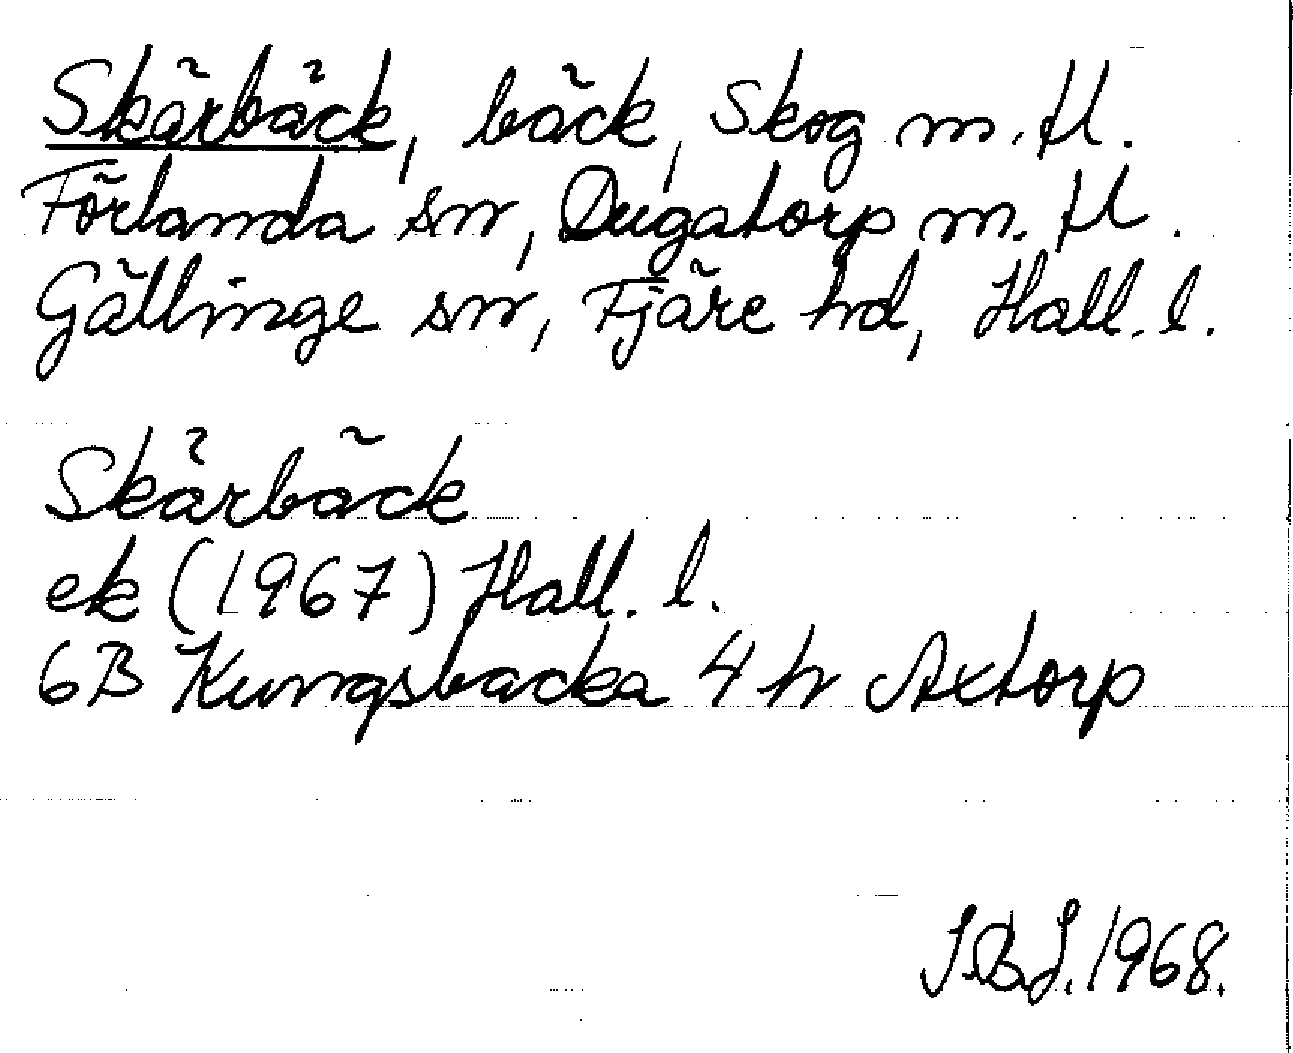 Skärbäck, bäck, Skog m. fl.
Förlanda sn, Dugatorp m. fl.
Gällinge sn, Fjäre hd, Hall. l.
Skärbäck
ek (1967) Hall. l.
6B Kungsbacka 4 h Axtorp
S.B.J. 1968.